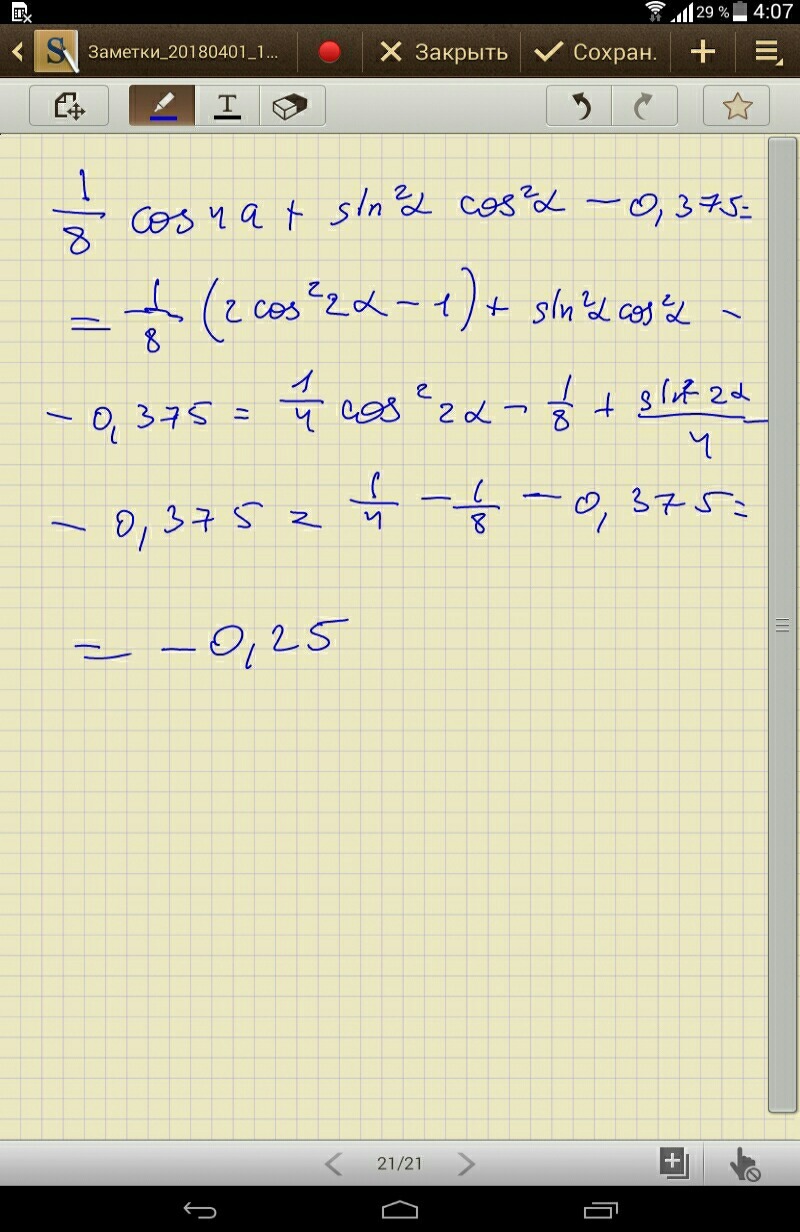 29 % 4:07
Заметки_20180401_1... Закрыть Сохран.
T
1/8 cos4α + sin²α cos²α − 0,375=
= 1/8 (2cos²2α − 1) + sin²α cos²α −
− 0,375 = 1/4 cos²2α − 1/8 + sin²2α/4 −
− 0,375 = 1/4 − 1/8 − 0,375=
= − 0,25
21/21